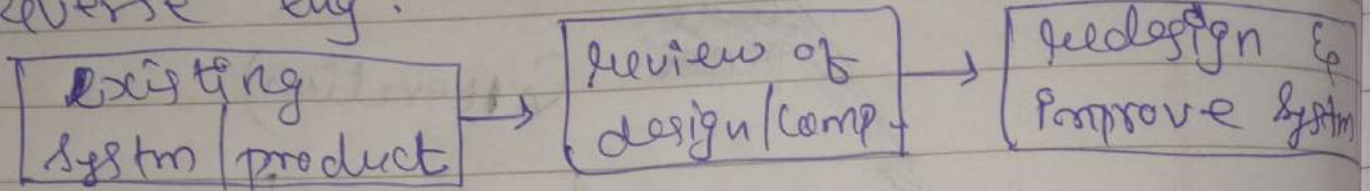 reverse eng.
existing
systm/product
review of
design/comp.
redesign &
improve systm